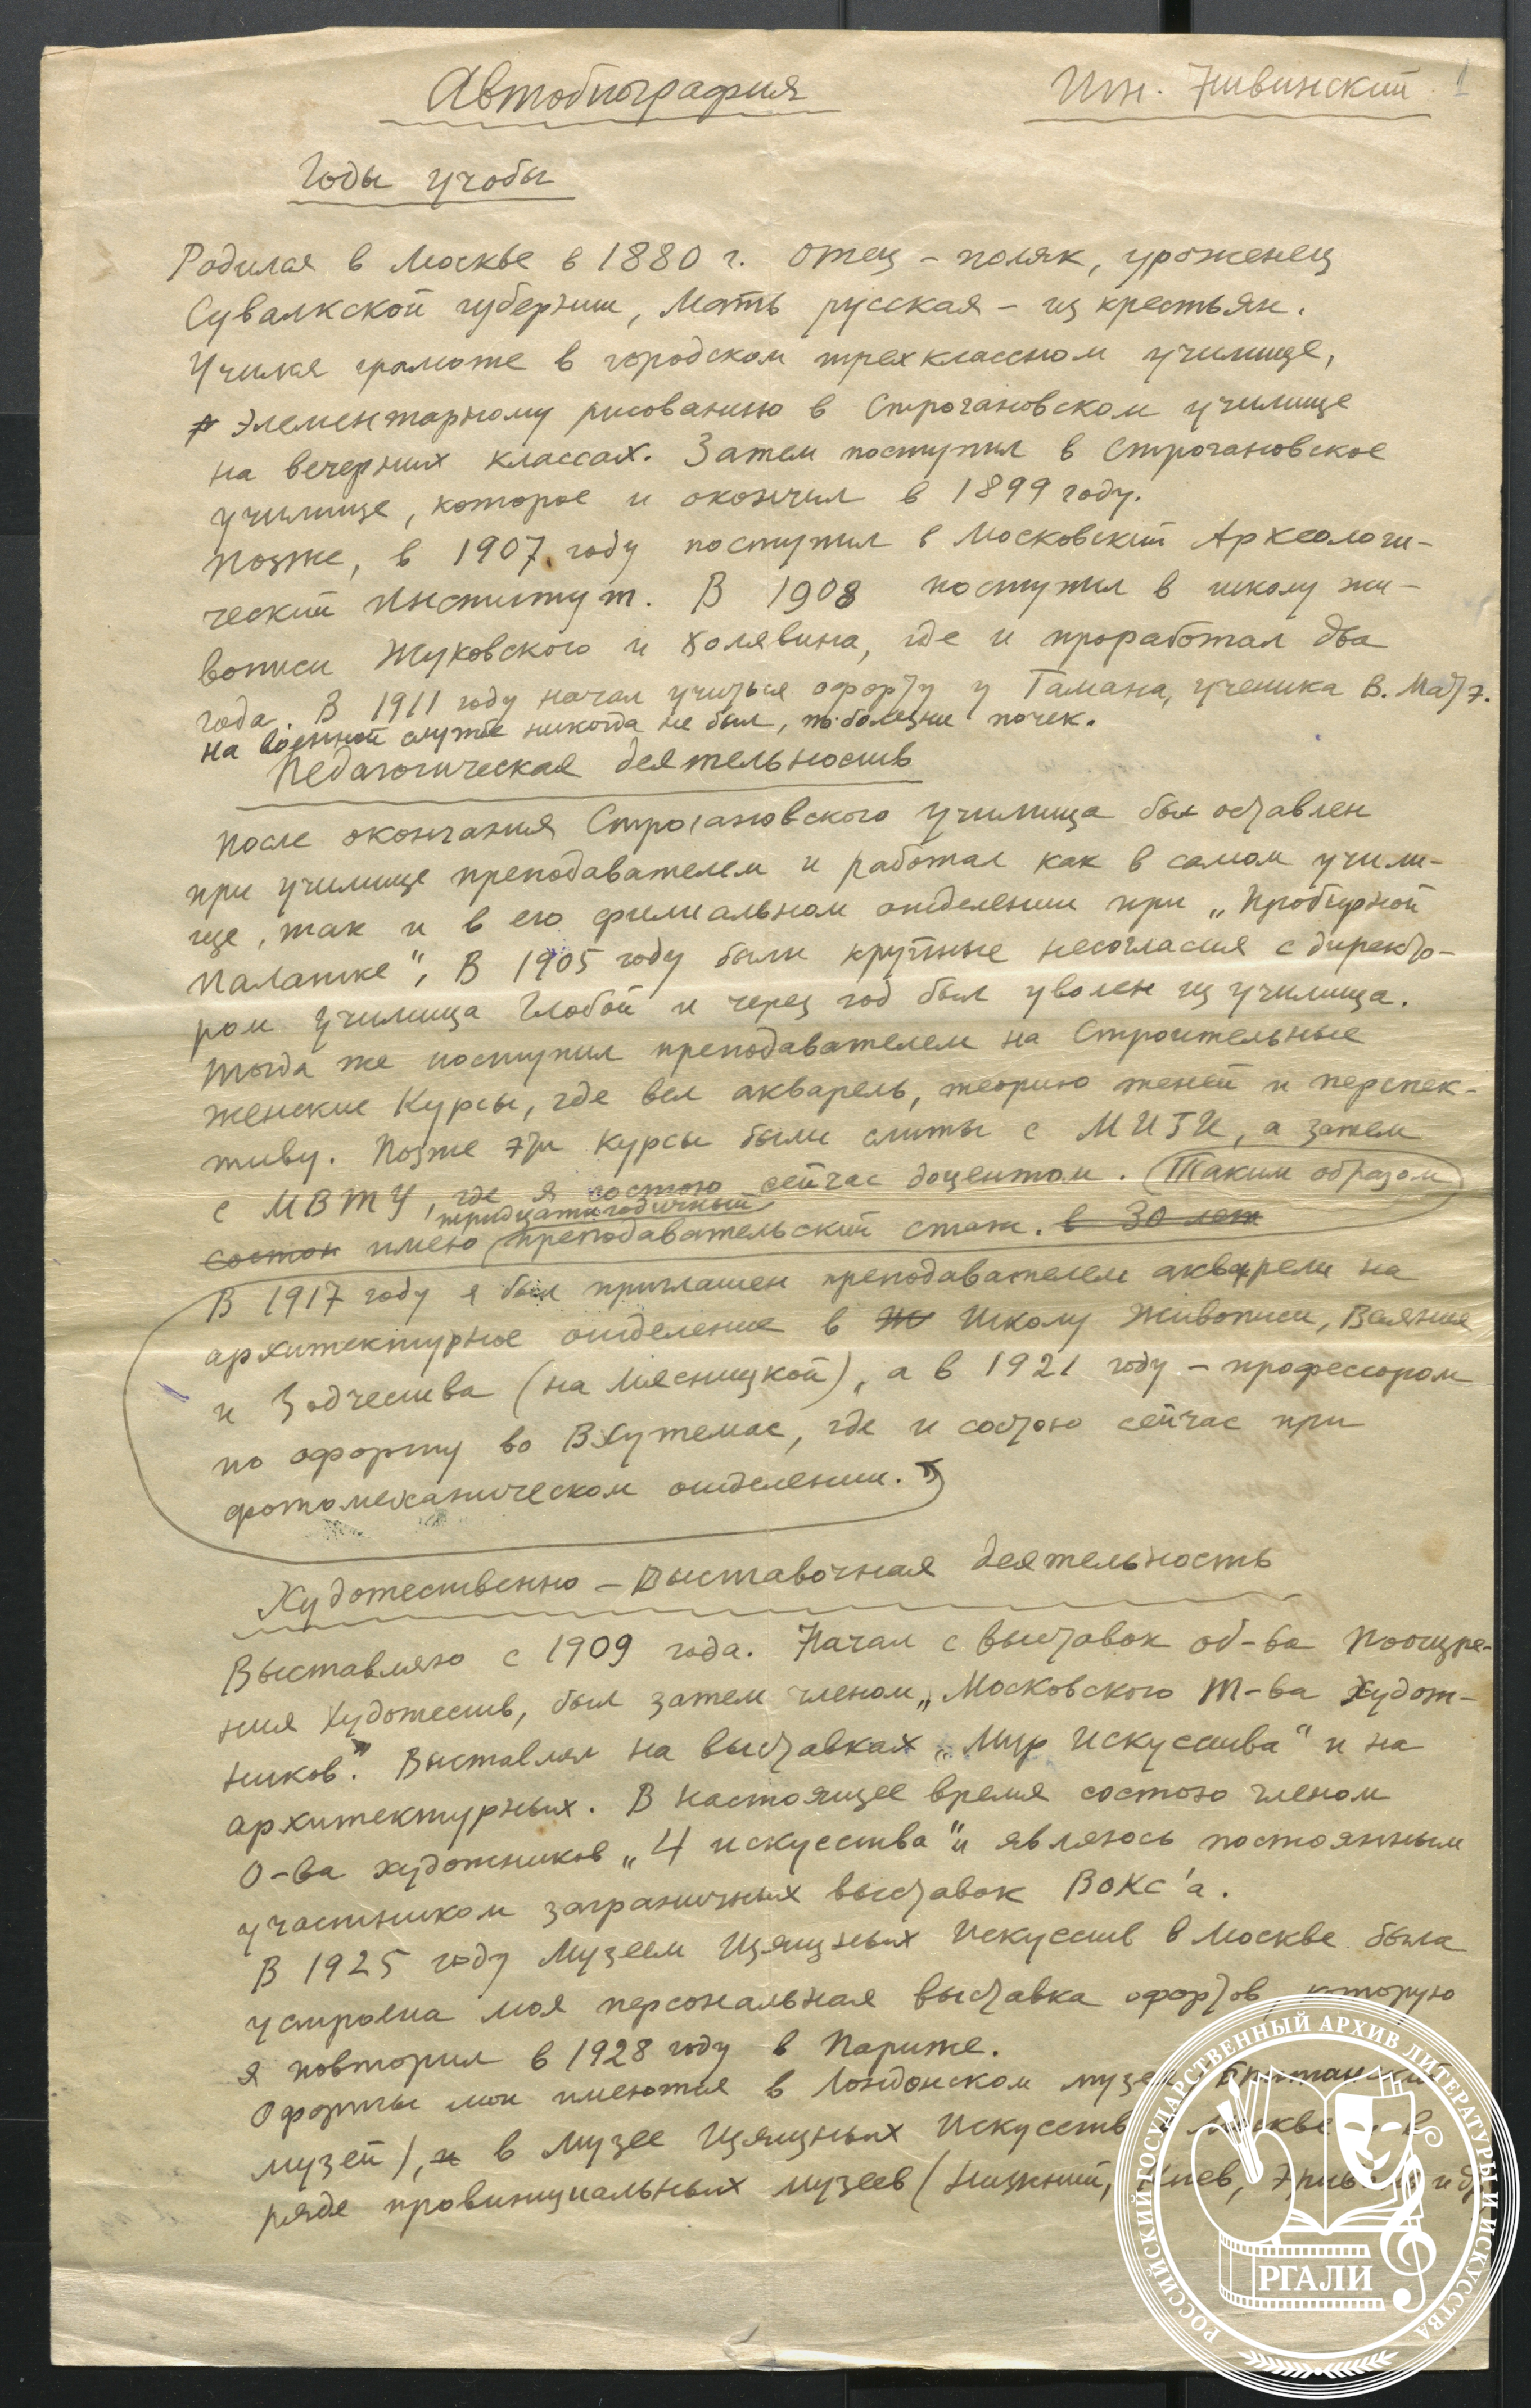 Автобиография
Игн. Нивинский 1
Годы учобы
Родился в Москве в 1880 г. Отец – поляк, уроженец
Сувалкской губернии, Мать русская – из крестьян.
Учился грамоте в городском трехклассном училище,
элементарному рисованию в Строгановском училище
на вечерних классах. Затем поступил в Строгановское
училище, которое и окончил в 1899 году.
Позже, в 1907 году поступил в Московский Археологи-
ческий Институт. В 1908 поступил в школу жи-
вописи Жуковского и Холявина, где и проработал два
года. В 1911 году начал учиться офорту у Гамана, ученика В. Матэ.
На военной службе никогда не был, по болезни почек.
Педагогическая деятельность
После окончания Строгановского Училища был оставлен
при училище преподавателем и работал как в самом учили-
ще, так и в его филиальном отделении при „Пробирной
Палатке“. В 1905 году были крупные несогласия с директо-
ром Училища Глобой и через год был уволен из училища.
Тогда же поступил преподавателем на Строительные
женские Курсы, где вел акварель, теорию теней и перспек-
тиву. Позже эти курсы были слиты с МИГИ, а затем
с МВТУ, где я состою сейчас доцентом. Таким образом
состою имею тридцатигодичный преподавательский стаж. в 30 лет
В 1917 году я был приглашен преподавателем акварели на
архитектурное отделение в Ж Школу Живописи, Ваяния
и Зодчества (на Мясницкой), а в 1921 году – профессором
по офорту во Вхутемас, где и состою сейчас при
фотомеханическом отделении.
Художественно – Выставочная деятельность
Выставляю с 1909 года. Начал с выставок об-ва Поощре-
ния Художеств, был затем членом „Московского Т-ва Худож-
ников“. Выставлял на выставках „Мир Искусства“ и на
архитектурных. В настоящее время состою членом
О-ва художников „4 искусства“ и являюсь постоянным
участником заграничных выставок ВОКС'а.
В 1925 году Музеем Изящных Искусств в Москве была
устроена моя персональная выставка офортов, которую
я повторил в 1928 году в Париже.
Офорты мои имеются в Лондонском музее (Британский
музей), и в Музее Изящных Искусств в Москве и в
ряде провинциальных музеев (Нижний, Киев, Эривань и др
РОССИЙСКИЙ ГОСУДАРСТВЕННЫЙ АРХИВ ЛИТЕРАТУРЫ И ИСКУССТВА
РГАЛИ